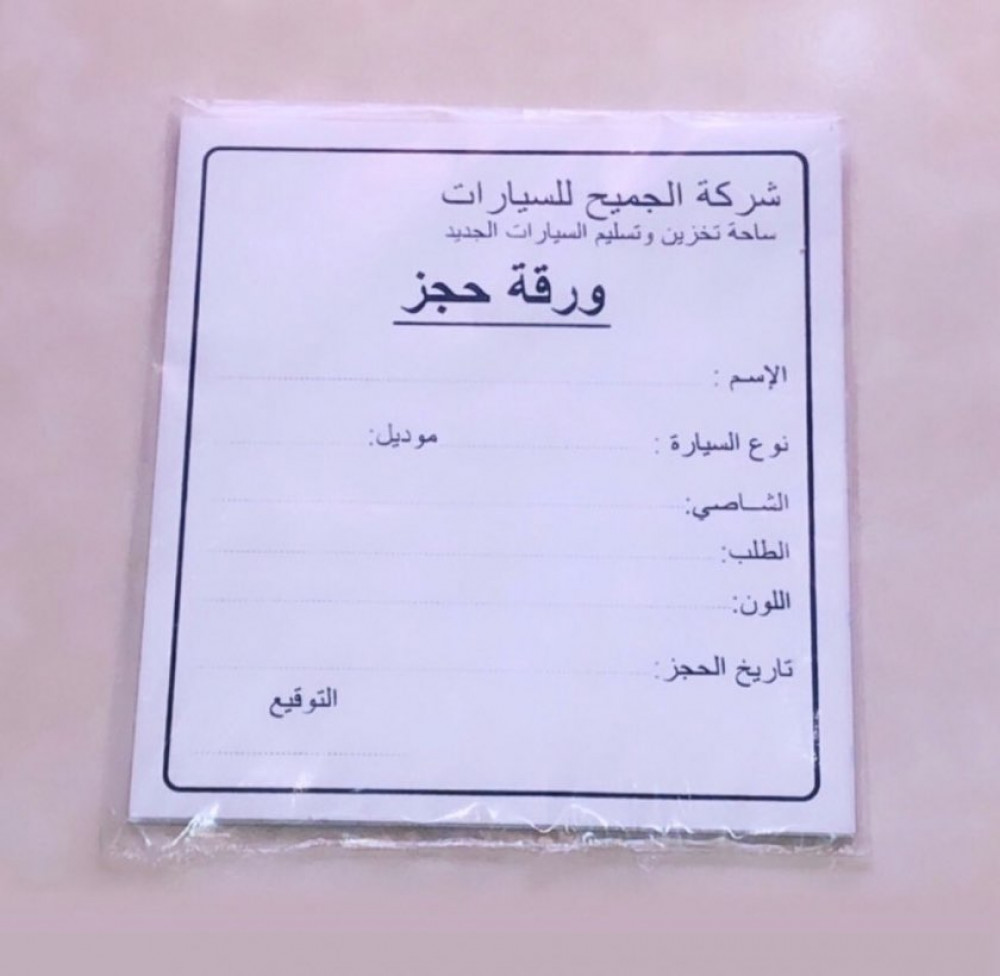 شركة الجميح للسيارات
ساحة تخزين وتسليم السيارات الجديد
ورقة حجز
الإسم :
نوع السيارة : موديل:
الشـاصي:
الطلب:
اللون:
تاريخ الحجز:
التوقيع